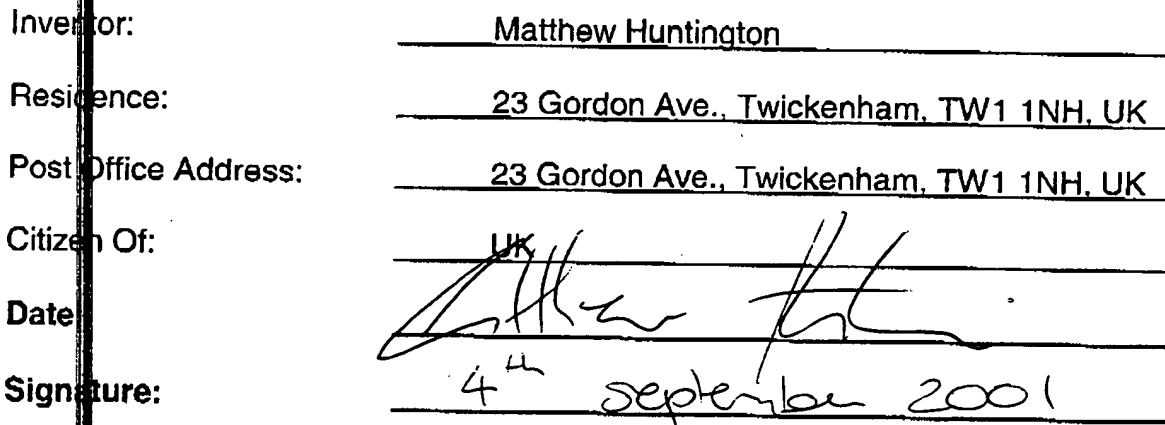 Inventor: Matthew Huntington
Residence: 23 Gordon Ave., Twickenham, TW1 1NH, UK
Post Office Address: 23 Gordon Ave., Twickenham, TW1 1NH, UK
Citizen Of: UK
Date: Matthew Huntington
Signature: 4th September 2001